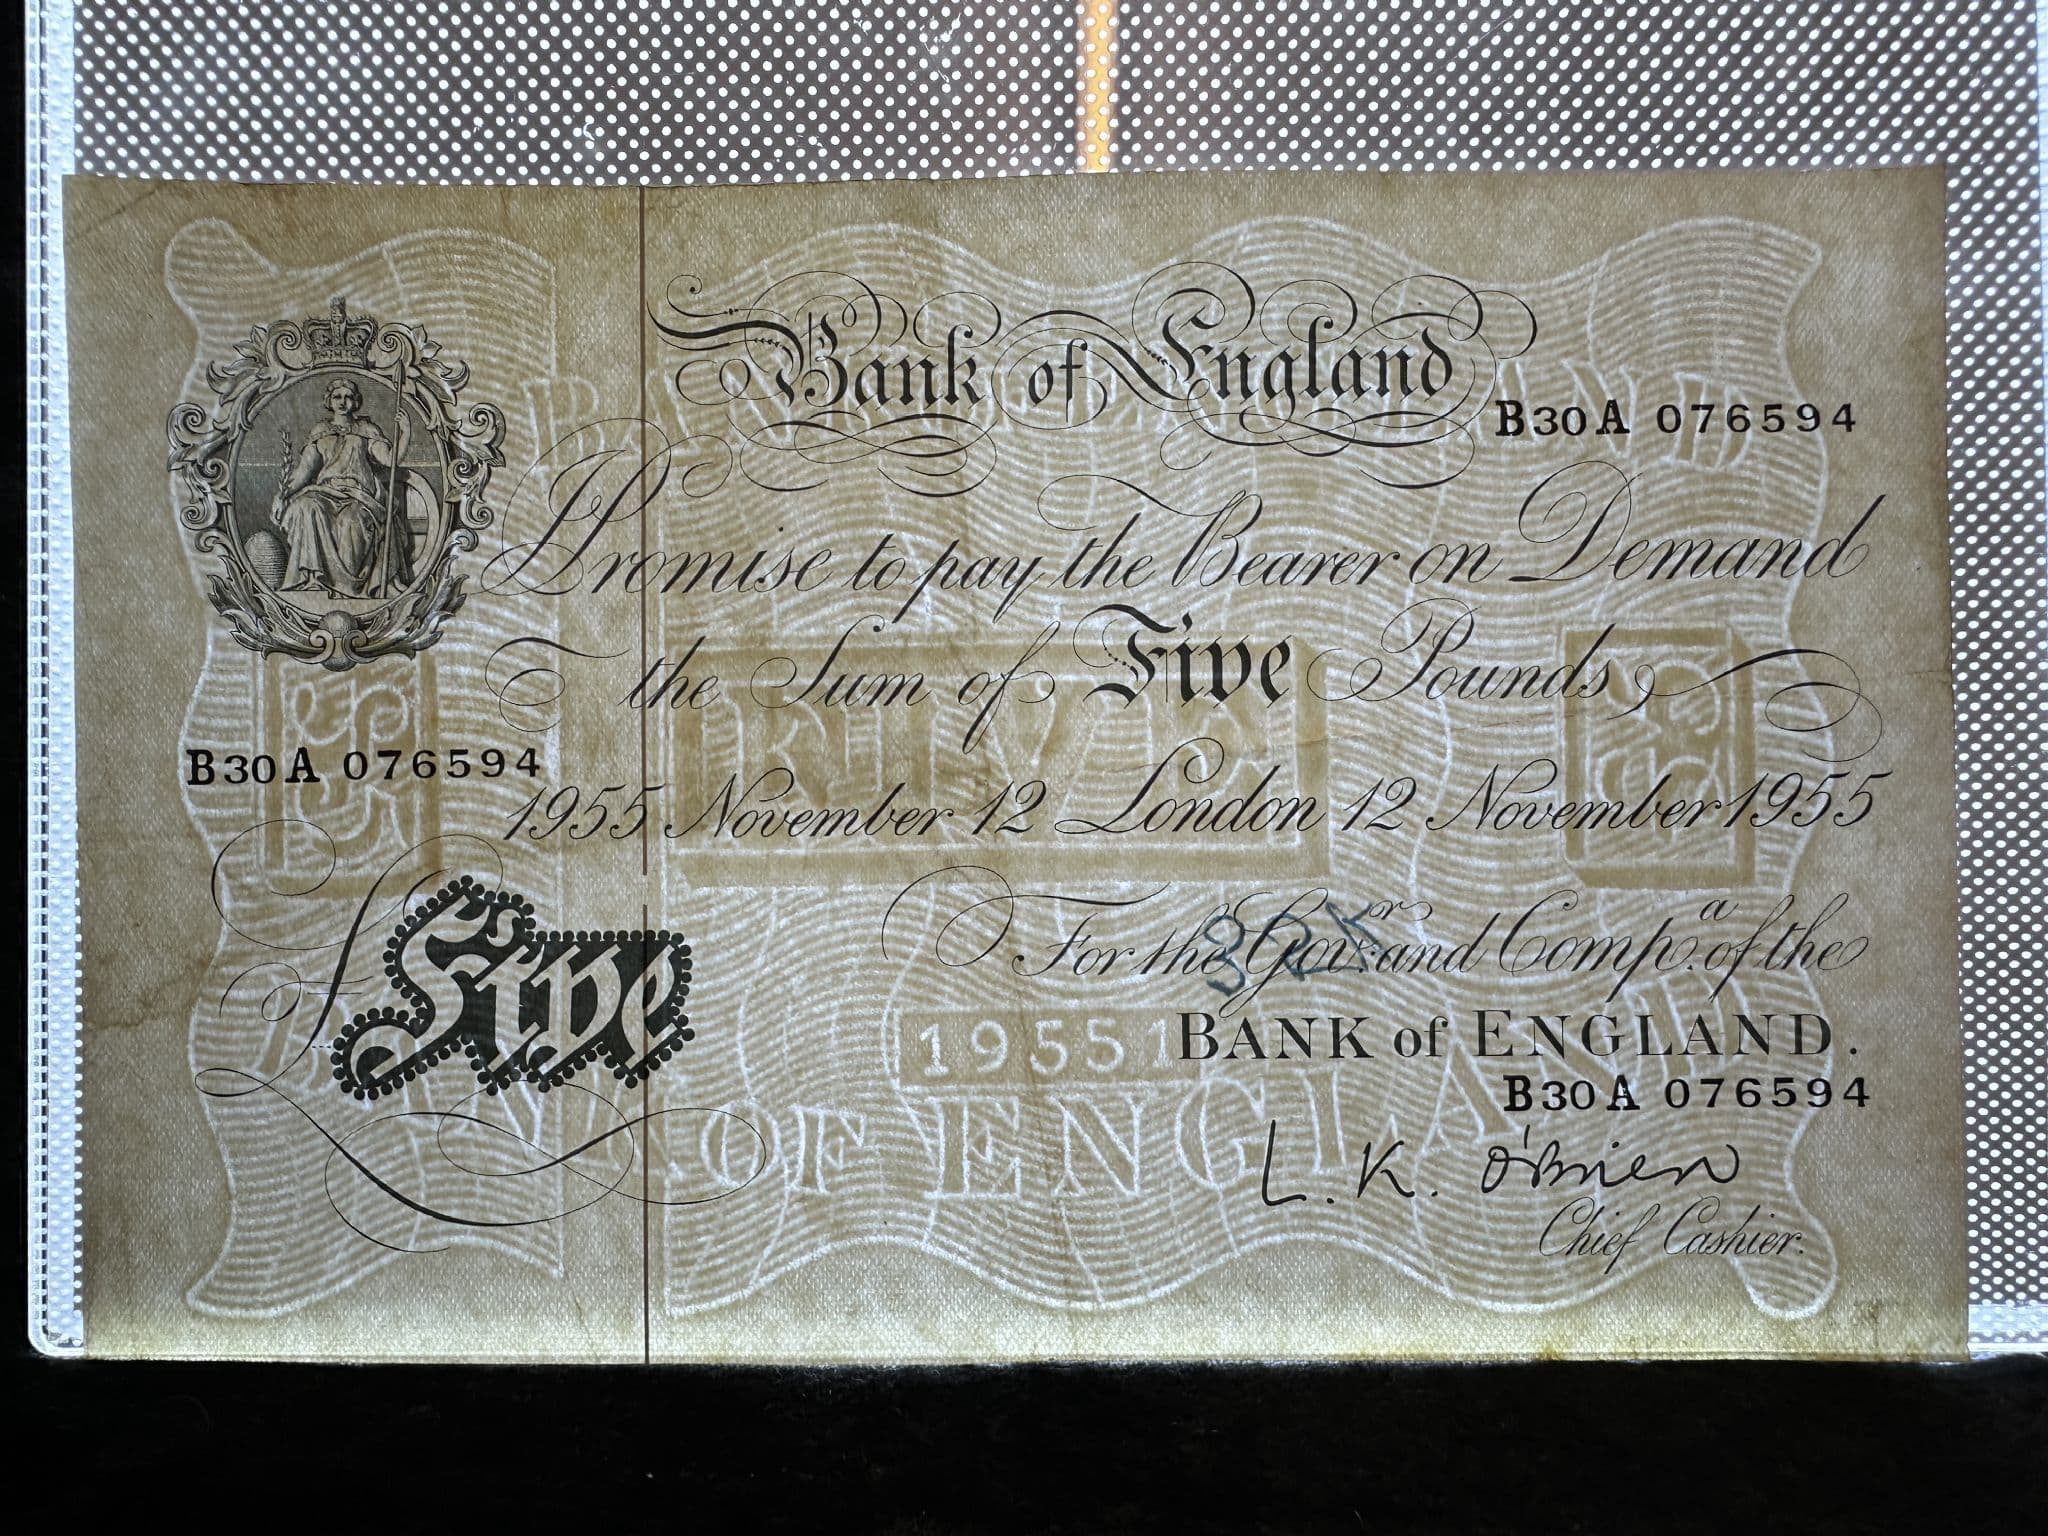 Bank of England
B30A 076594
I Promise to pay the Bearer on Demand
the Sum of Five Pounds
B30A 076594
1955 November 12 London 12 November 1955
For the Govr. and Compa. of the
£ Five
19551
BANK of ENGLAND.
B30A 076594
L. K. O'Brien
Chief Cashier.
BANK OF ENGLAND
FIVE
BANK OF ENGLAND